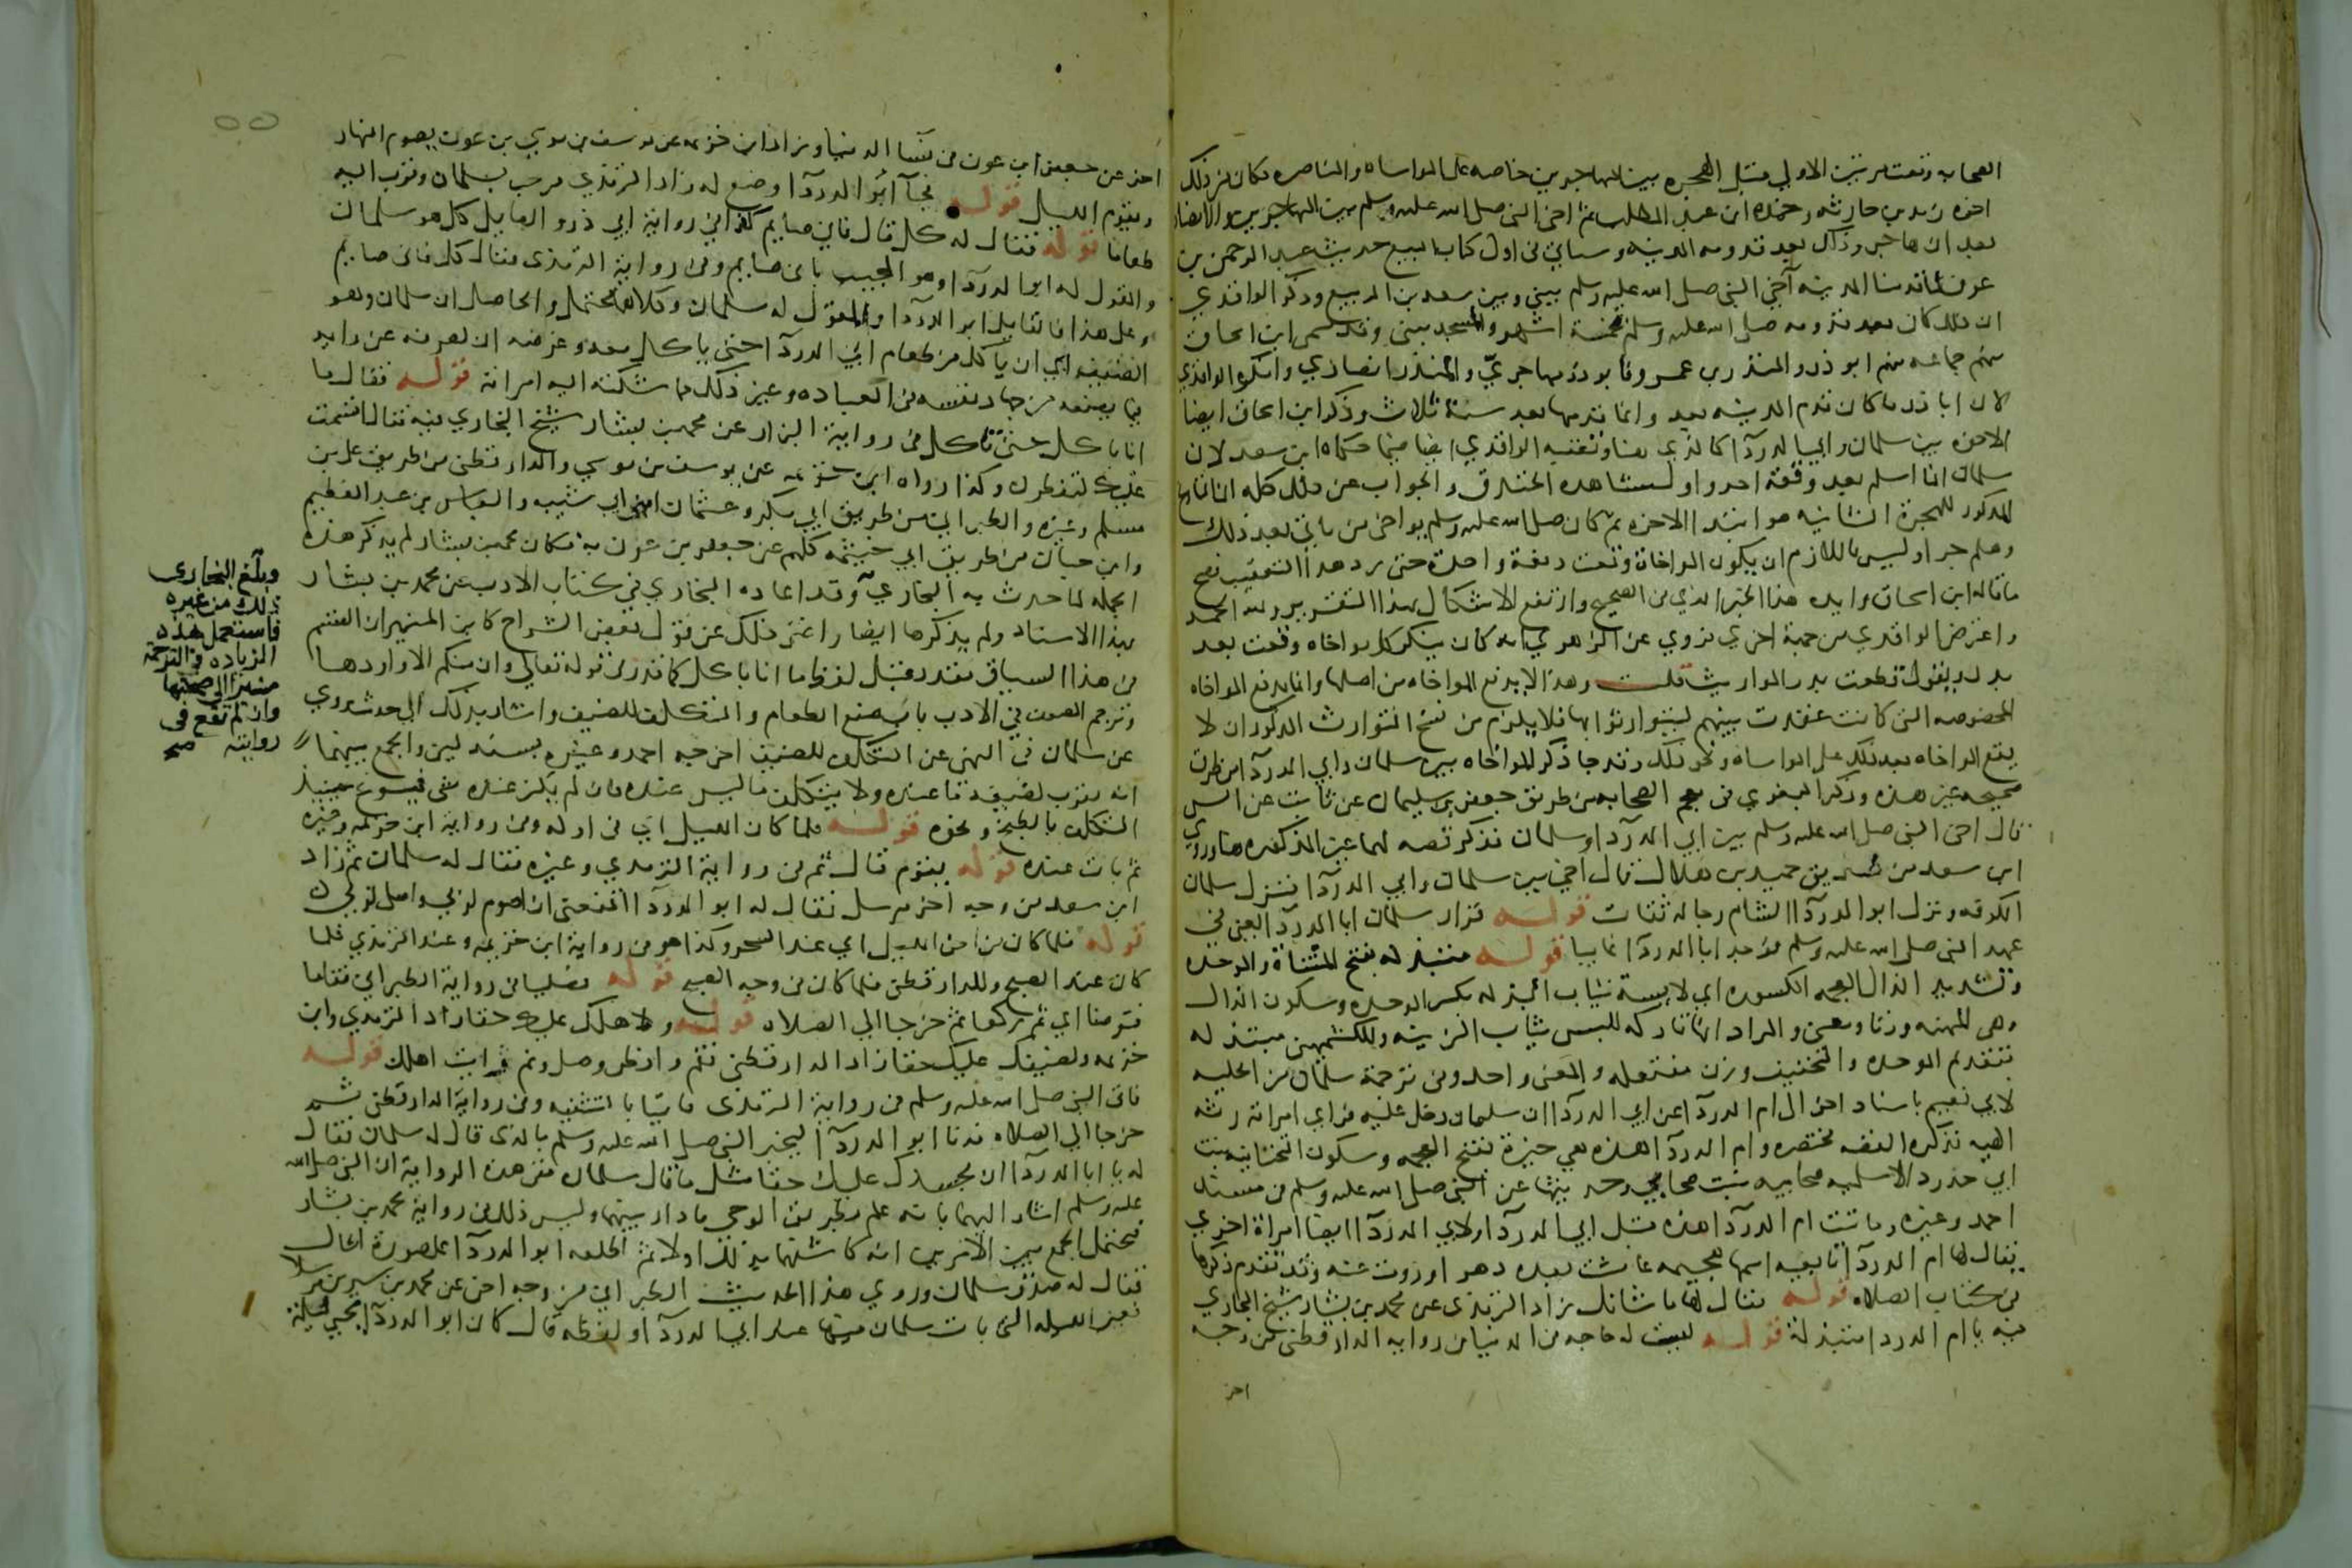 الصحابه وقعت مرتين الاولي قبل الهجره بين المهاجرين خاصه على المواساه والمناصره فكان من ذلك
اخوه زيد بن حارثه وحمزه ابن عبد المطلب ثم اخى النبي صلى الله عليه وسلم بين المهاجرين والانصار
بعد ان هاجر وذلك بعد قدومه المدينه وسياتي في اول كتاب البيع حديث عبد الرحمن بن
عوف لما قدمنا المدينه آخي النبي صلى الله عليه وسلم بيني وبين سعد بن الربيع وذكر الواقدي
ان ذلك كان بعد قدومه صلى الله عليه وسلم بخمسة اشهر والمسجد يبنى وقد سمى ابن اسحاق
منهم جماعه منهم ابو ذر والمنذر بن عمرو فابو ذر مهاجريّ والمنذر انصاري وانكره الواقدي
لان ابا ذر ما كان قدم المدينه بعد وانما قدمها بعد سنة ثلاث وذكر ابن اسحاق ايضا
الاخوه بين سلمان وابي الدردآ كالذي هنا وتعقبه الواقدي ايضا فيما حكاه ابن سعد لان
سلمان انما اسلم بعد وقعة احد واول مشاهده الخندق والجواب عن ذلك كله ان التاريخ
المذكور للهجرة الثانيه هو ابتدا الاخوه ثم كان صلى الله عليه وسلم يواخي بين من ياتي بعد ذلك
وهلم جرا وليس باللازم ان يكون المواخاة وقعت دفعة واحدة حتى يرد هذا التعقيب فصح
ما قاله ابن اسحاق وايده هذا الخبر الذي في الصحيح وارتفع الاشكال بهذا التقرير ولله الحمد
واعترض الواقدي من جهة اخري فروي عن الزهري انه كان ينكر كل مواخاه وقعت بعد
بدر ويقول قطعت بدر المواريث قلت وهذا لا يدفع المواخاه من اصلها وانما يدفع المواخاه
المخصوصه التي كانت عقدت بينهم ليتوارثوا بها فلا يلزم من نسخ التوارث المذكور ان لا
يقع المواخاه بعد ذلك على المواساه ونحو ذلك وقد جا ذكر المواخاه بين سلمان وابي الدردآ من طرق
صحيحه غير هذه وذكر البغوي في معجم الصحابه من طريق جعفر بن سليمان عن ثابت عن انس
قال اخي النبي صلى الله عليه وسلم بين ابي الدردآ وسلمان فذكر قصه لهما غير المذكوره هنا وروي
ابن سعد من طريق حميد بن هلال قال اخي بين سلمان وابي الدردآ فنزل سلمان
الكوفه ونزل ابو الدردآ الشام ورجاله ثقات قوله فزار سلمان ابا الدردآ يعني في
عهد النبي صلى الله عليه وسلم فوجد ابا الدردآ غايبا قوله متبذله بفتح المثناة والموحده
وتشديد الذال المعجمه المكسوره اي لابسة ثياب البذله بكسر الموحده وسكون الذال
وهي المهنه وزنا ومعنى والمراد انها تاركه للبس ثياب الزينه وللكشميهني مبتذله
بتقديم الموحده والتخفيف وزن مفتعله والمعنى واحد وفي ترجمة سلمان من الحليه
لابي نعيم باسناد اخر الى ام الدردآ عن ابي الدردآ ان سلمان دخل عليه فراي امراته رثه
الهيه فذكره القصه مختصره وام الدردآ هذه هي خيرة بفتح المعجمه وسكون التحتانيه بنت
ابي حدرد الاسلميه صحابيه بنت صحابي وحديثها عن النبي صلى الله عليه وسلم في مسند
احمد وغيره وماتت ام الدردآ هذه قبل ابي الدردآ ولابي الدردآ ايضا امراة اخري
يقال لها ام الدردآ تابعيه اسمها هجيمه عاشت بعده دهرا وروت عنه وقد تقدم ذكرها
في كتاب الصلاه قوله فقال لها ما شانك زاد الترمذي عن محمد بن بشار شيخ البخاري
فيه يا ام الدردا متبذلة قوله ليست له حاجه في الدنيا في روايه الدارقطني من وجه
اخر
اخر عن جعفر ابن عون في نسا الدنيا وزاد ابن خزيمه عن يوسف بن موسي بن عون يصوم النهار
ويقوم الليل قوله فجآ ابو الدردآ وضع له زاد الترمذي فرحب بسلمان وقرب اليه
طعاما قوله فقال له كل قال فاني صايم كذا في رواية ابي ذر والقايل كل هو سلمان
والمقول له ابو الدردآ وهو المجيب باني صايم وفي رواية الترمذي فقال كل فاني صايم
وعلى هذا فالقايل ابو الدردآ والمقول له سلمان وكلاهما محتمل والحاصل ان سلمان وهو
الضيف ابي ان ياكل من طعام ابي الدردآ حتى ياكل معه وغرضه ان يصرفه عن رايه
فيما يصنعه من جهاد نفسه في العباده وغير ذلك مما شكته اليه امراته قوله فقال ما
انا باكل حتى تاكل في رواية البزار عن محمد بن بشار شيخ البخاري فيه فقال اقسمت
عليك لتفطرن وكذا رواه ابن خزيمه عن يوسف بن موسي والدارقطني من طريق علي بن
مسلم وغيره والطبراني من طريق ابي بكر وعثمان ابني ابي شيبه والعباس بن عبد العظيم
وابن حبان من طريق ابي خيثمه كلهم عن جعفر بن عون به فكان محمد بن بشار لم يذكر هذه
الجمله لما حدث به البخاري وقد اعاده البخاري في كتاب الادب عن محمد بن بشار
بهذا الاسناد ولم يذكرها ايضا واغنى ذلك عن قول بعض الشراح كابن المنير ان القسم
في هذا السياق مقدر قبل لفظ ما انا باكل كما قدر في قوله تعالي وان منكم الا واردها
وترجم المصنف في الادب باب صنع الطعام والتكلف للضيف واشار بذلك الي حديث روي
عن سلمان في النهي عن التكلف للضيف اخرجه احمد وغيره بسند لين والجمع بينهما
انه يقرب لضيفه ما عنده ولا يتكلف ما ليس عنده فان لم يكن عنده شي فيسوغ حينيذ
التكلف بالطبخ ونحوه قوله فلما كان الليل اي في اوله وفي رواية ابن خزيمه وغيره
ثم بات عنده قوله يقوم قال نم في رواية الترمذي وغيره فقال له سلمان نم زاد
ابن سعد من وجه اخر مرسل فقال له ابو الدردآ اتمنعني ان اصوم لربي واصلي لربي
قوله فلما كان من اخر الليل اي عند السحر وكذا هو في رواية ابن خزيمه وعند الترمذي فلما
كان عند الصبح وللدارقطني فلما كان في وجه الصبح قوله فصليا في رواية الطبراني فقاما
فتوضا اي ثم ركعا ثم خرجا الي الصلاه قوله ولاهلك عليك حقا زاد الترمذي وابن
خزيمه ولضيفك عليك حقا زاد الدارقطني فصم وافطر وصل ونم وات اهلك قوله
فاتي النبي صلى الله عليه وسلم في رواية الترمذي فاتيا بالتثنيه وفي رواية الدارقطني ثم
خرجا الي الصلاه فدنا ابو الدردآ ليخبر النبي صلى الله عليه وسلم بالذي قال له سلمان فقال
له يا ابا الدردآ ان لجسدك عليك حقا مثل ما قال سلمان ففي هذه الرواية ان النبي صلى الله
عليه وسلم اشار اليهما بانه علم بطريق الوحي ما دار بينهما وليس ذلك في رواية محمد بن بشار
فيحتمل الجمع بين الامرين انه كاشفهما بذلك اولا ثم اطلعه ابو الدردآ على صورة الحال
فقال له صدق سلمان وروي هذا الحديث الطبراني من وجه اخر عن محمد بن سيرين مرسلا
فعين الليله التي بات سلمان فيها عند ابي الدردآ ولفظه قال كان ابو الدردآ يحيي ليلة
وبلغ البخاري
ذلك من غيره
فاستعمل هذه
الزياده في الترجمة
مشيرا الى صحتها
وان لم تقع في
روايته صح